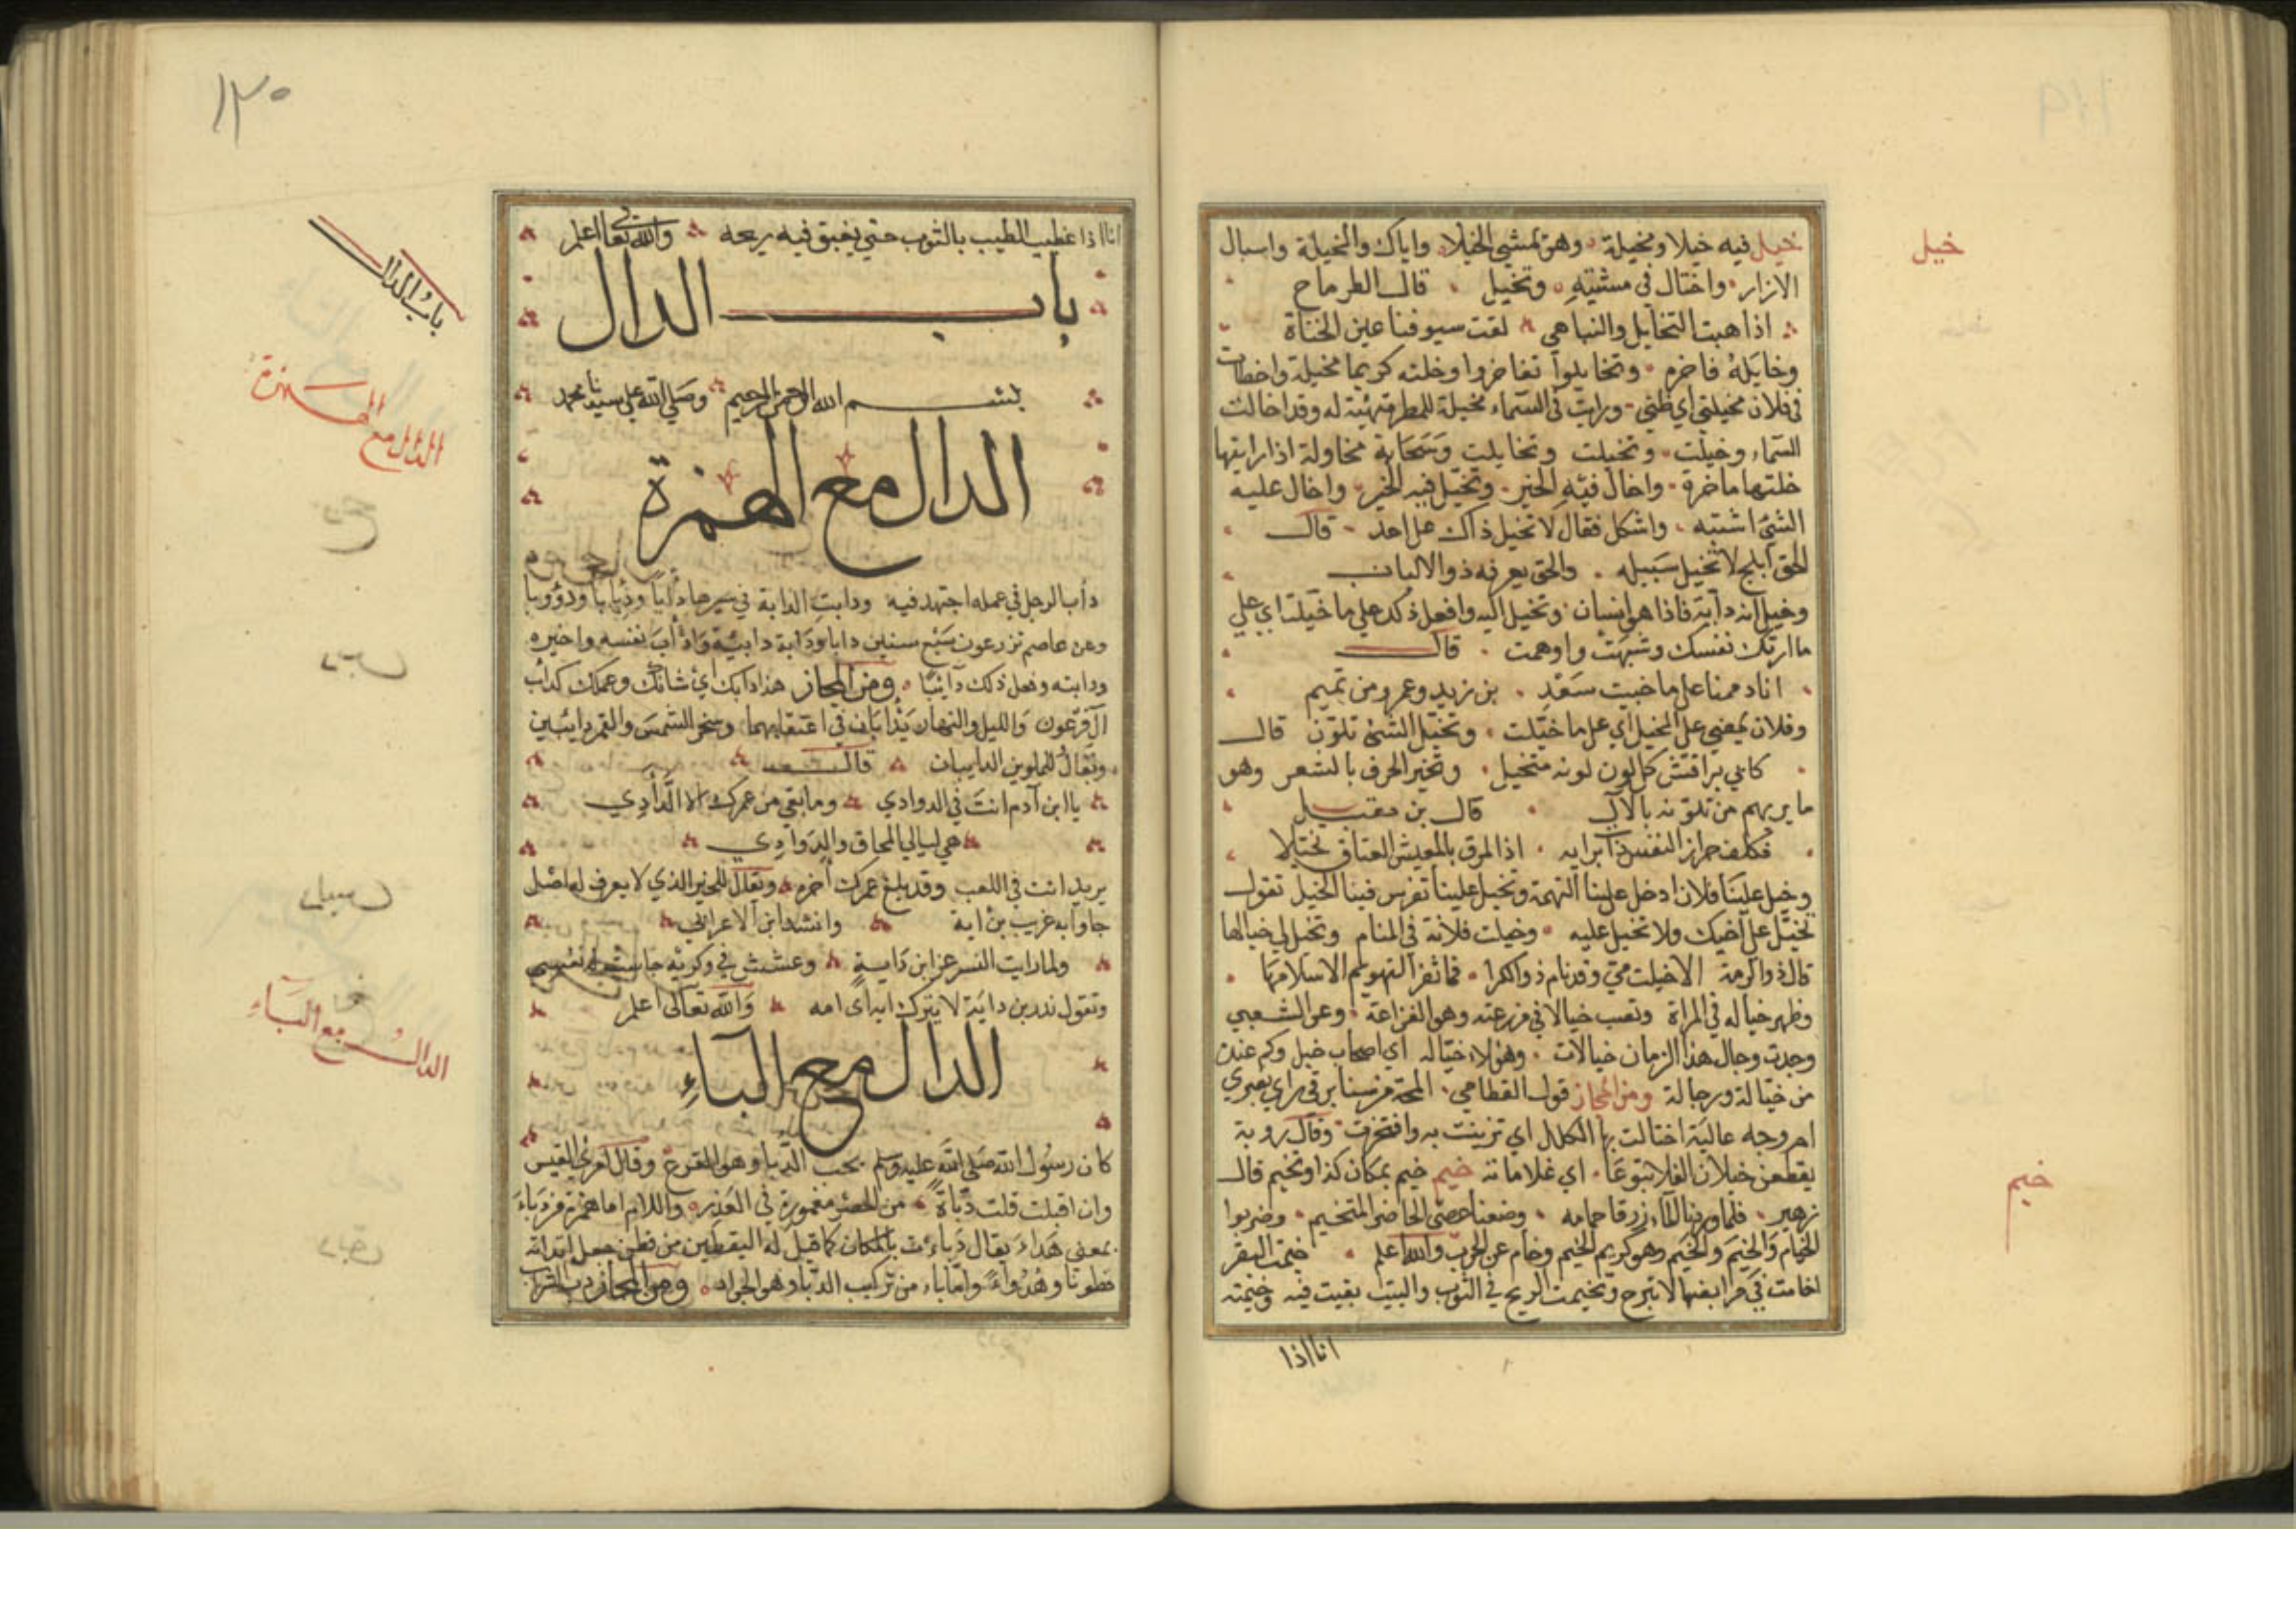 خيل
خيل فيه خيلا ومخيلة وهو يمشي الخيلا واياك والمخيلة واسبال
الازار واختال في مشيته وتخيل قال الطرماح
اذا هبت التخايل والتباهي لقت سيوفنا عين الختاة
وخايله فاخرم وتخايلوا تفاخروا وخلته كريما مخيلة واخطات
في فلان مخيلتي اي ظني ورايت في السماء مخيلة للمطر تهيئة له وقد اخالت
السماء وخيلت وتخيلت وتخايلت وسحابة مخاولة اذا رايتها
خلتها ماخرة واخال فيه الخير وتخيل فيه الخير واخال عليه
الشئ اشتبه واشكل فقال لا تخيل ذاك على احد قال
الحق ابلج لا تخيل سبيله والحق يعرفه ذو الالباب
وخيل انه دابة فاذا هو انسان وتخيل اليه وافعل ذكد على ما خيلت اي على
ما ارتك نفسك وشبهت واوهمت قال
اناد ممنا على ما خيبت سعد بن زيد وعمرو من تميم
وفلان يمضي على المخيل اي على ما خيلت وتخيل الشئ تلون قال
كابي براقش كل لون لونه متخيل وتخير الحرف بالشعر وهو
ما يريهم من تلونه بالال قال بن مقبيل
وخيل علينا فلان ادخل علينا التهمة وتخيل علينا تفرس فينا الخيل تقول
تخيل على اخيك ولا تخيل عليه وخيلت فلانة في المنام وتخيل لي خيالها
قال ذو الرمة الا خيلت مي وقد نام ذو الكرا فما نفر التهويم الا سلامها
وظهر خياله في المراة ونصب خيالا في مزرعته وهو الفزاعة وعن الشعبي
وجدت وجال هذا الزمان خيالات وهؤلاء خياله اي اصحاب خيل وكم عندن
من خيالة ورجالة ومن المجاز قول القطامي المحة من سنا برق راي بصري
ام وجه عالية اختالت بها الكلل اي تزينت به وافتخرت وقال روبة
يقطعن خيلان الفلا تبوعا اي غلاماته خيم خيم بمكان كذا وتخيم قال
خيم
زهير فلما وردنا الماء زرقا حمامه وضعنا عصي الحاضر المتخيم وضربوا
الخيام والخيم والخيم وهو كريم الخيم وخام عن الحرب والله اعلم خيمت البقر
اقامت في مرابضها لا تبرح وتخيمت الريح في الثوب والبيت بقيت فيه وخيمته
انا اذا
١٢٠
انا اذا غطيب الطيب بالثوب حتى يغبق فيه ريحه والله تعالى اعلم
باب الدال
باب الدال
بسم الله الرحمن الرحيم وصلى الله على سيدنا محمد
الدال مع الهمزة
الدال مع الهمزة
داب الرجل في عمله اجتهد فيه ودابت الدابة في سيرها دابا ودئابا ودؤوبا
وعن عاصم تزرعون سبع سنين دابا ودابة دابية وادأب نفسه واخيره
ودابته وفعل ذلك دايبا ومن المجاز هذا دابك اي شانك وعملك كداب
آل فرعون والليل والنهار يدابان في اعتقابهما وسخر الشمس والقمر دايبين
ويقال للملوين الدايبان قال
يا ابن آدم انت في الدوادي وما بقي من عمرك الا الدأدي
هي ليالي المحاق والدوادي
يريد انت في اللعب وقد بلغ عمرك اخره ويقال للخير الذي لا يعرف له اصل
جاوا به غريب بن داية وانشد ابن الاعرابي
ولما رايت النسر عز ابن داية وعشش في وكريه جاشت له نفسي
وتقول نذر بن داية لا يترك اية امه والله تعالى اعلم
الدال مع الباء
الدال مع الباء
كان رسول الله صلى الله عليه وسلم يحب الدبا وهو القرع وقال امرئ القيس
وان اقبلت قلت دباة من الخضر مغمورة في الغدر واللام اما همزة فز دباء
بمعنى هداء يقال دباءت بالمكان كما قيل له اليقطين من قطن جعل ابدانه
قطونا وهدواء واما باء من تركيب الدبا وهو الجراد ومن المجاز دب الشراب